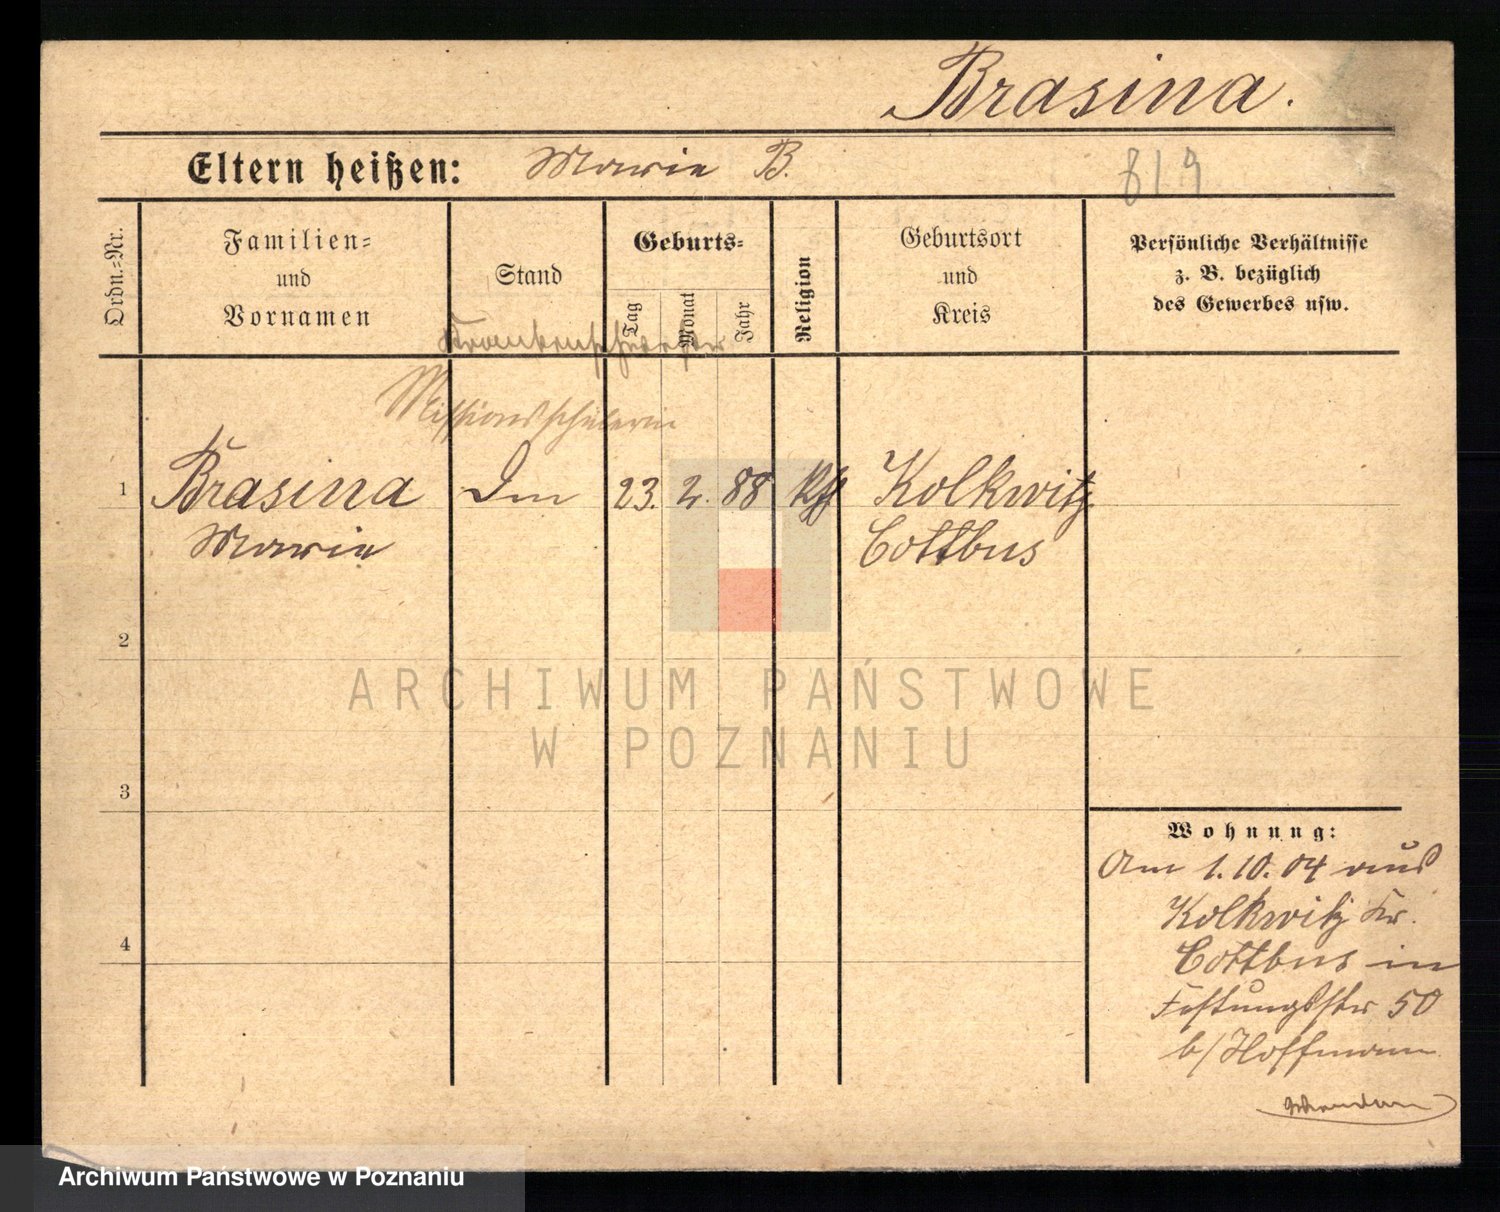 Brasina.
Eltern heißen: Marie B.
819
Ordn.=Nr.
Familien=
und
Vornamen
Stand
Geburts=
Tag
Monat
Jahr
Religion
Geburtsort
und
Kreis
Persönliche Verhältnisse
z. B. bezüglich
des Gewerbes usw.
Missionsschülerin
1 Brasina 23. 2. 88 Kolkwitz
Marie Cottbus
2
3
4
Wohnung:
Am 1.10.04 aus
Kolkwitz Kr.
Cottbus in
Festungsstr 50
b/Hoffmann
ARCHIWUM PAŃSTWOWE
W POZNANIU
Archiwum Państwowe w Poznaniu